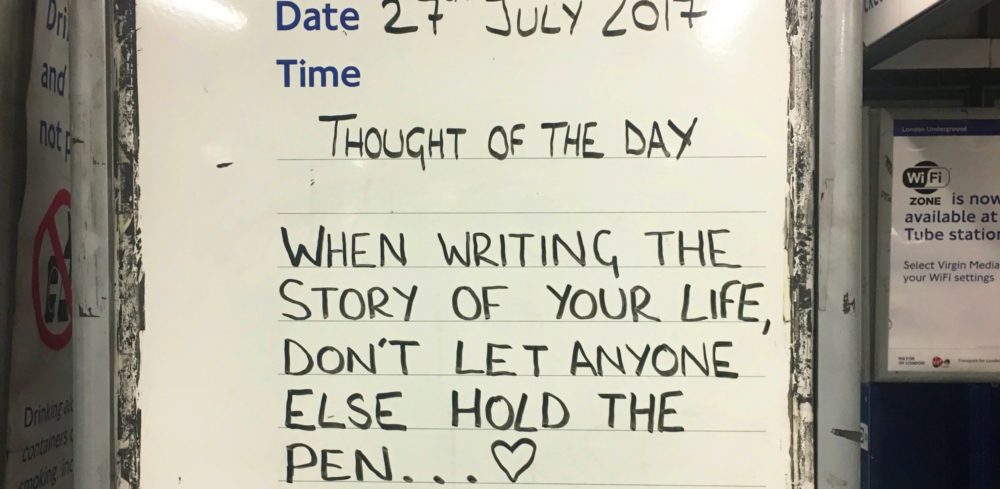 Date 27th JULY 2017
Time
THOUGHT OF THE DAY
WHEN WRITING THE
STORY OF YOUR LIFE,
DON'T LET ANYONE
ELSE HOLD THE
PEN...♡
Dri
and
not p
Drinking al
containers o
smoking inc
London Underground
WiFi
ZONE is now
available at
Tube station
Select Virgin Media
your WiFi settings
MAYOR
OF LONDON
Transport for London